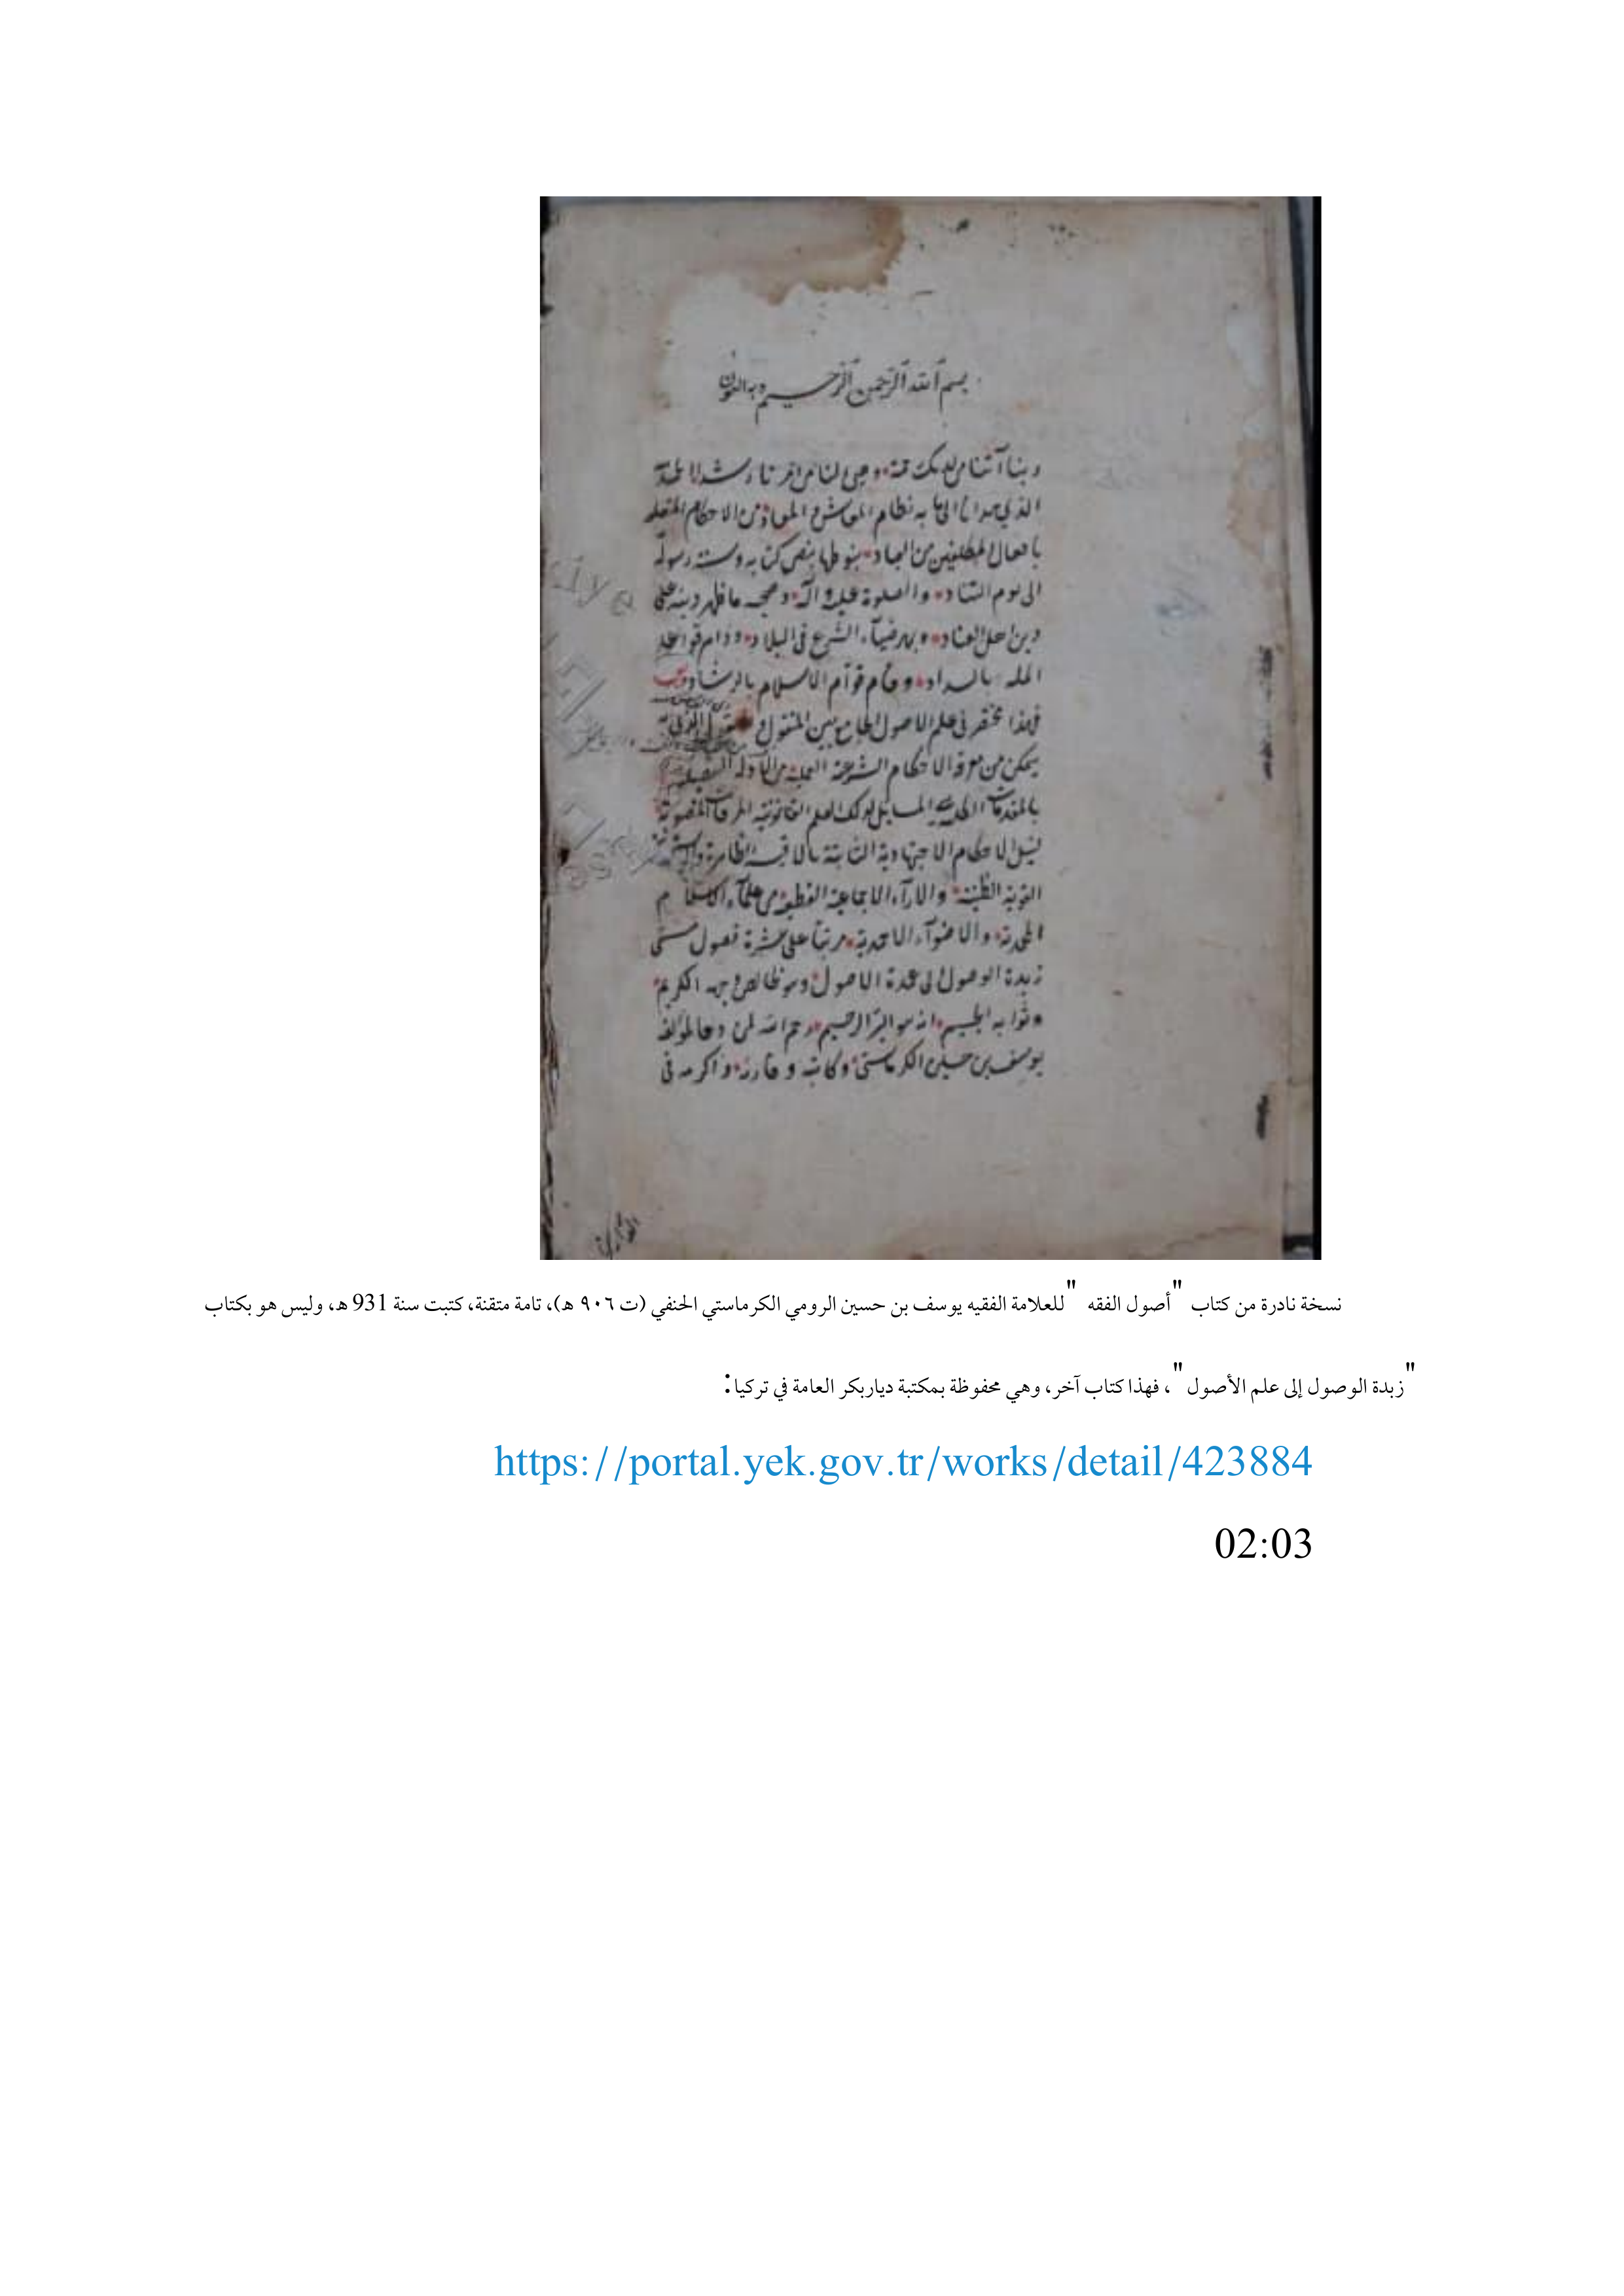 بسم الله الرحمن الرحيم وبه العون
ربنا آتنا من لدنك رحمة وهيئ لنا من امرنا رشدا الحمد لله
الذي هدانا الى ما به نظام المعاش والمعاد من الاحكام المتعلقه
بافعال المكلفين من العباد بنوطها بنص كتابه وسنة رسوله
الى يوم التناد والصلوة عليه وآله وصحبه ما ظهر دينه على
دين اهل العناد وبهر ضياء الشرع في البلاد ودام قواعد
المله بالسداد وقام قوام الاسلام بالرشاد
فهذا مختصر في علم الاصول الجامع بين المنقول
يمكن من معرفة الاحكام الشرعية العملية من الأدلة
بالمقدمات المسايل لذلك العلم القانونية
لنيل الاحكام الاجتهادية الثابتة بالاقيسة الظاهرة
القوية الظنية والآراء الاجماعية القطعية من علماء الاسلام
مرتبا على عشرة فصول مسمى
زبدة الوصول الى عمدة الاصول لوجهه الكريم
وثوابه الجسيم انه هو البر الرحيم رحم الله لمن دعا لمؤلفه
يوسف بن حسين الكرماستي وكاتبه وقارئه واكرمه في
نسخة نادرة من كتاب "أصول الفقه "للعلامة الفقيه يوسف بن حسين الرومي الكرماستي الحنفي (ت ٩٠٦ هـ)، تامة متقنة، كتبت سنة 931 هـ، وليس هو بكتاب
"زبدة الوصول إلى علم الأصول"، فهذا كتاب آخر، وهي محفوظة بمكتبة دياربكر العامة في تركيا:
https://portal.yek.gov.tr/works/detail/423884
02:03